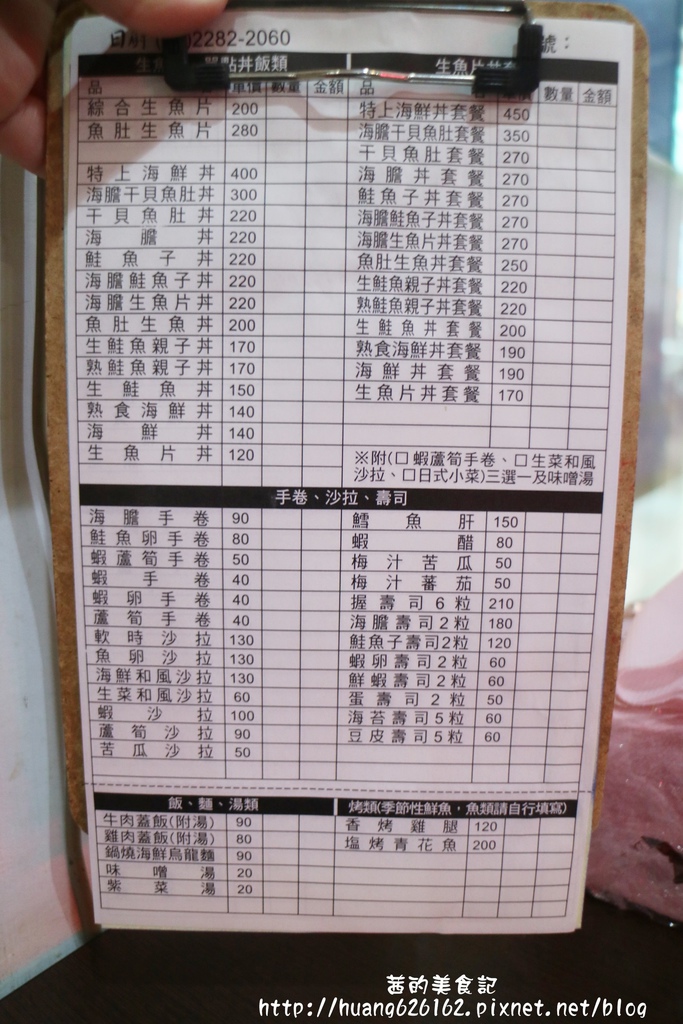 2282-2060 號：
點丼飯類
品 單價 數量 金額
綜合生魚片 200
魚肚生魚片 280
特上海鮮丼 400
海膽干貝魚肚丼 300
干貝魚肚丼 220
海膽丼 220
鮭魚子丼 220
海膽鮭魚子丼 220
海膽生魚片丼 220
魚肚生魚丼 200
生鮭魚親子丼 170
熟鮭魚親子丼 170
生鮭魚丼 150
熟食海鮮丼 140
海鮮丼 140
生魚片丼 120
生魚片丼套
品 數量 金額
特上海鮮丼套餐 450
海膽干貝魚肚套餐 350
干貝魚肚套餐 270
海膽丼套餐 270
鮭魚子丼套餐 270
海膽鮭魚子丼套餐 270
海膽生魚片丼套餐 270
魚肚生魚丼套餐 250
生鮭魚親子丼套餐 220
熟鮭魚親子丼套餐 220
生鮭魚丼套餐 200
熟食海鮮丼套餐 190
海鮮丼套餐 190
生魚片丼套餐 170
※附(□蝦蘆筍手卷、□生菜和風
沙拉、□日式小菜)三選一及味噌湯
手卷、沙拉、壽司
海膽手卷 90
鮭魚卵手卷 80
蝦蘆筍手卷 50
蝦手卷 40
蝦卵手卷 40
蘆筍手卷 40
軟時沙拉 130
魚卵沙拉 130
海鮮和風沙拉 130
生菜和風沙拉 60
蝦沙拉 100
蘆筍沙拉 90
苦瓜沙拉 50
鱈魚肝 150
蝦醋 80
梅汁苦瓜 50
梅汁蕃茄 50
握壽司6粒 210
海膽壽司2粒 180
鮭魚子壽司2粒 120
蝦卵壽司2粒 60
鮮蝦壽司2粒 60
蛋壽司2粒 50
海苔壽司5粒 60
豆皮壽司5粒 60
飯、麵、湯類
牛肉蓋飯(附湯) 90
雞肉蓋飯(附湯) 80
鍋燒海鮮烏龍麵 90
味噌湯 20
紫菜湯 20
烤類(季節性鮮魚，魚類請自行填寫)
香烤雞腿 120
塩烤青花魚 200
茜的美食記
http://huang626162.pixnet.net/blog